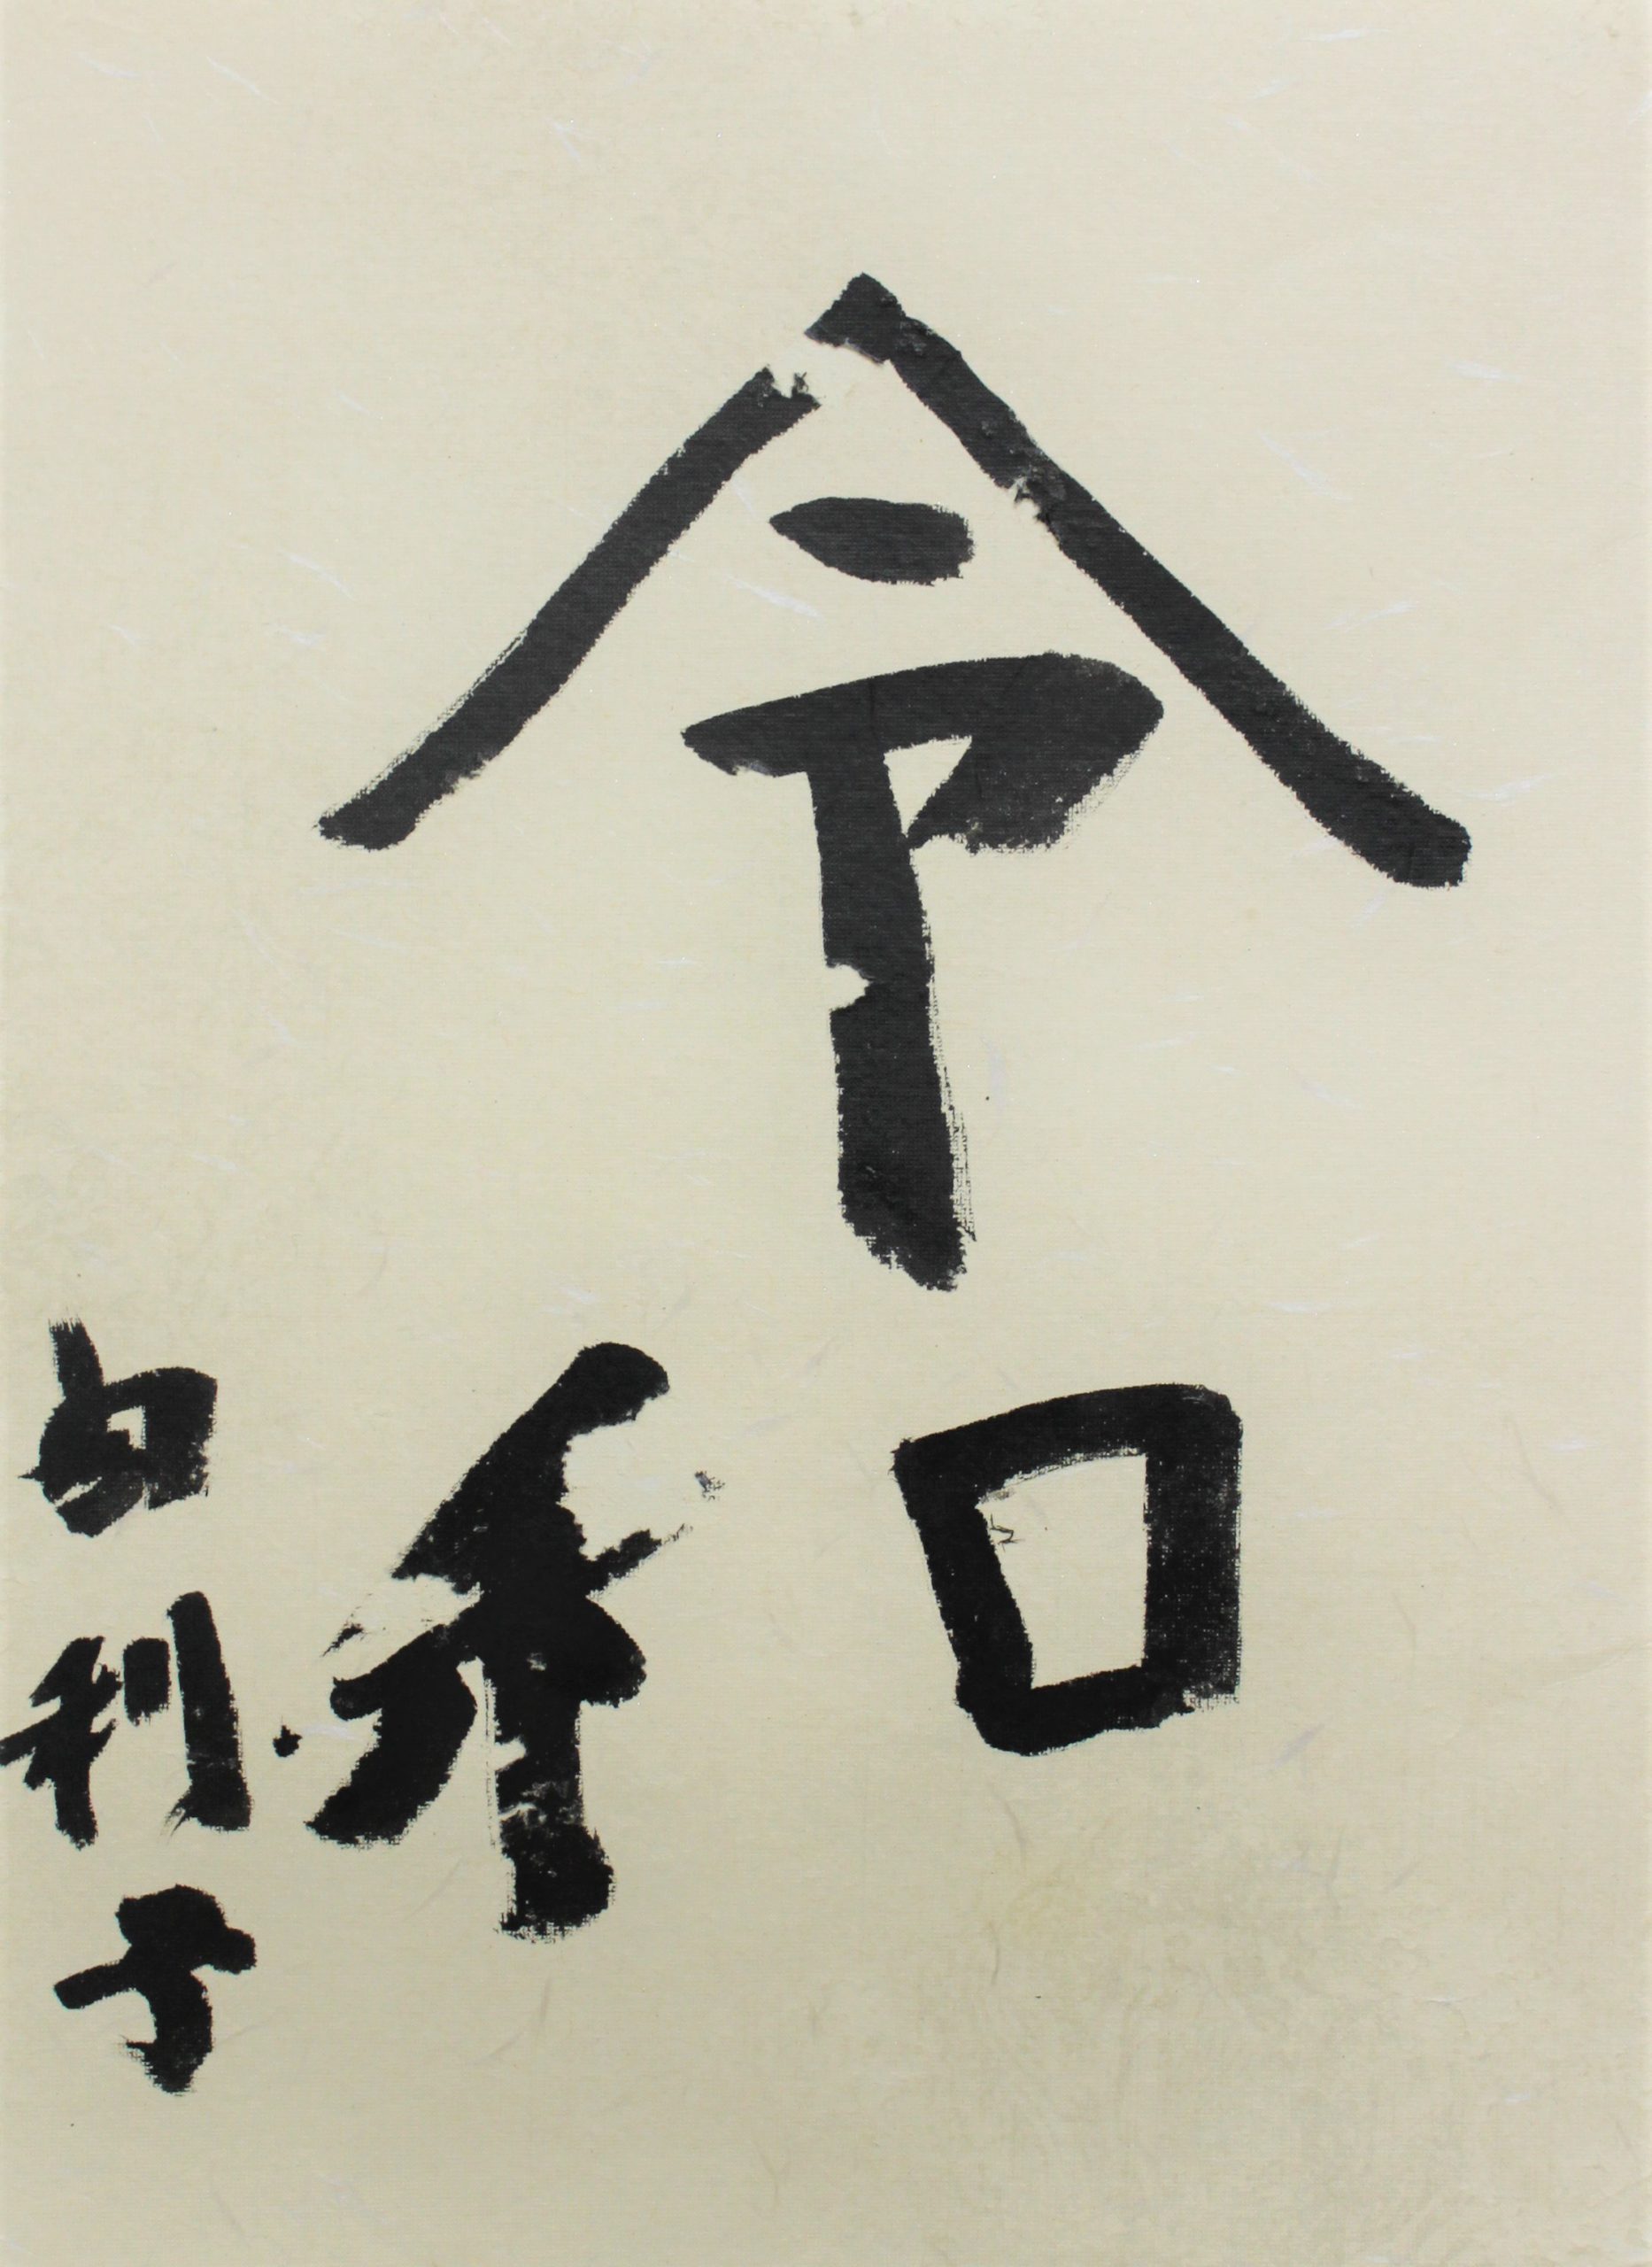 令
和
由利子